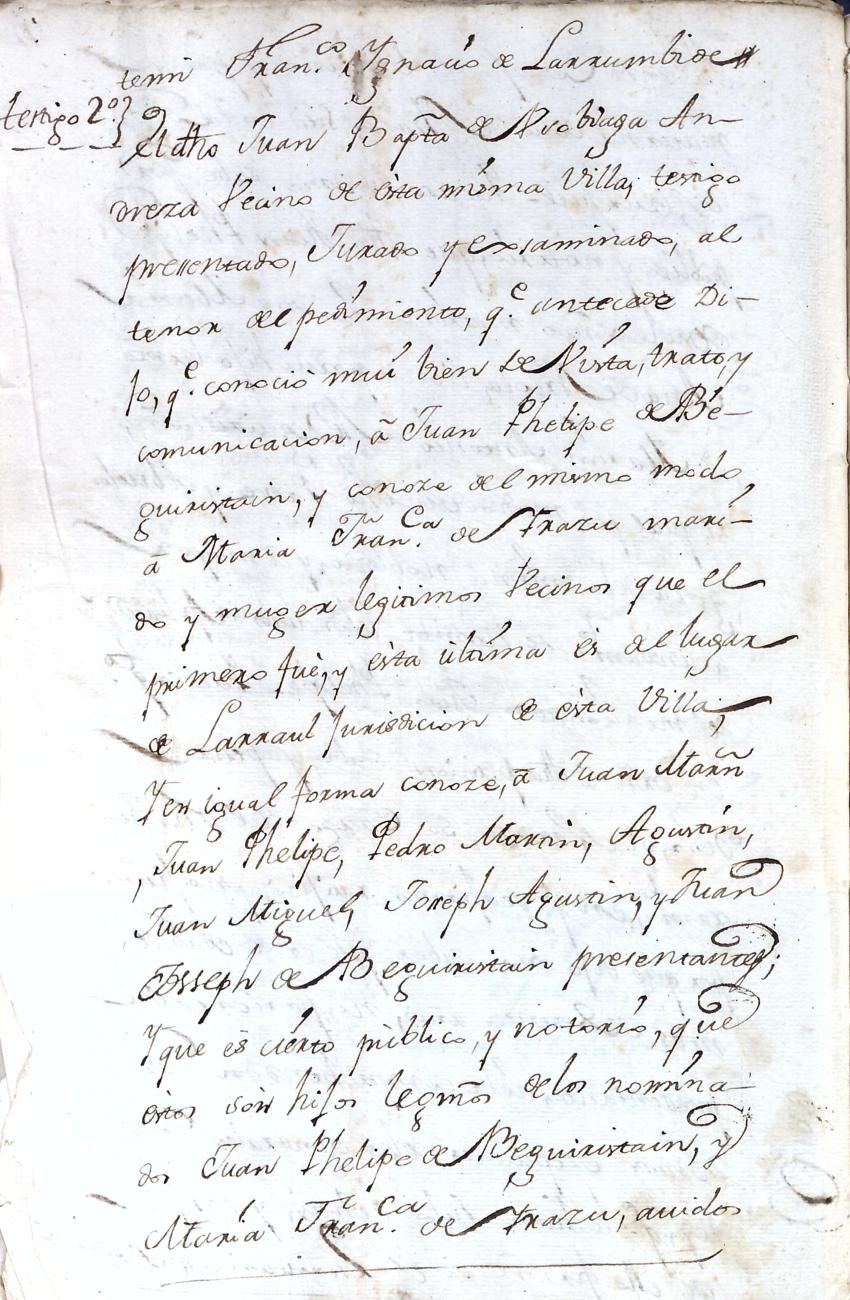 temi Fran.co Ygnacio de Larrumbide #
testigo 2º}
El dho Juan Bapta de Ysobiaga An-
dreza Vecino de ésta misma Villa, testigo
presentado, Jurado y exsaminado, al
tenor del pedimiento, q.e antecede Di-
jo, q.e conoció mui bien de Vista, trato, y
comunicacion, à Juan Phelipe de Be-
guiristain, y conoze del mismo modo
à Maria Fran.ca de Yrazu mari-
do y muger legitimos Vecinos que el
primero fué, y ésta última és del lugar
de Larraul Jurisdicion de ésta Villa,
Y en igual forma conoze, à Juan Marñ
, Juan Phelipe, Pedro Martin, Agustin,
Juan Miguel, Joseph Agustin, y Juan
Josseph de Beguiristain presentantes;
Y que és ciérto pùblico, y notorio, que
éstos són hijos legmos de los nomina-
dos Juan Phelipe de Beguiristain, y
María Fran.ca de Yrazu, avidos